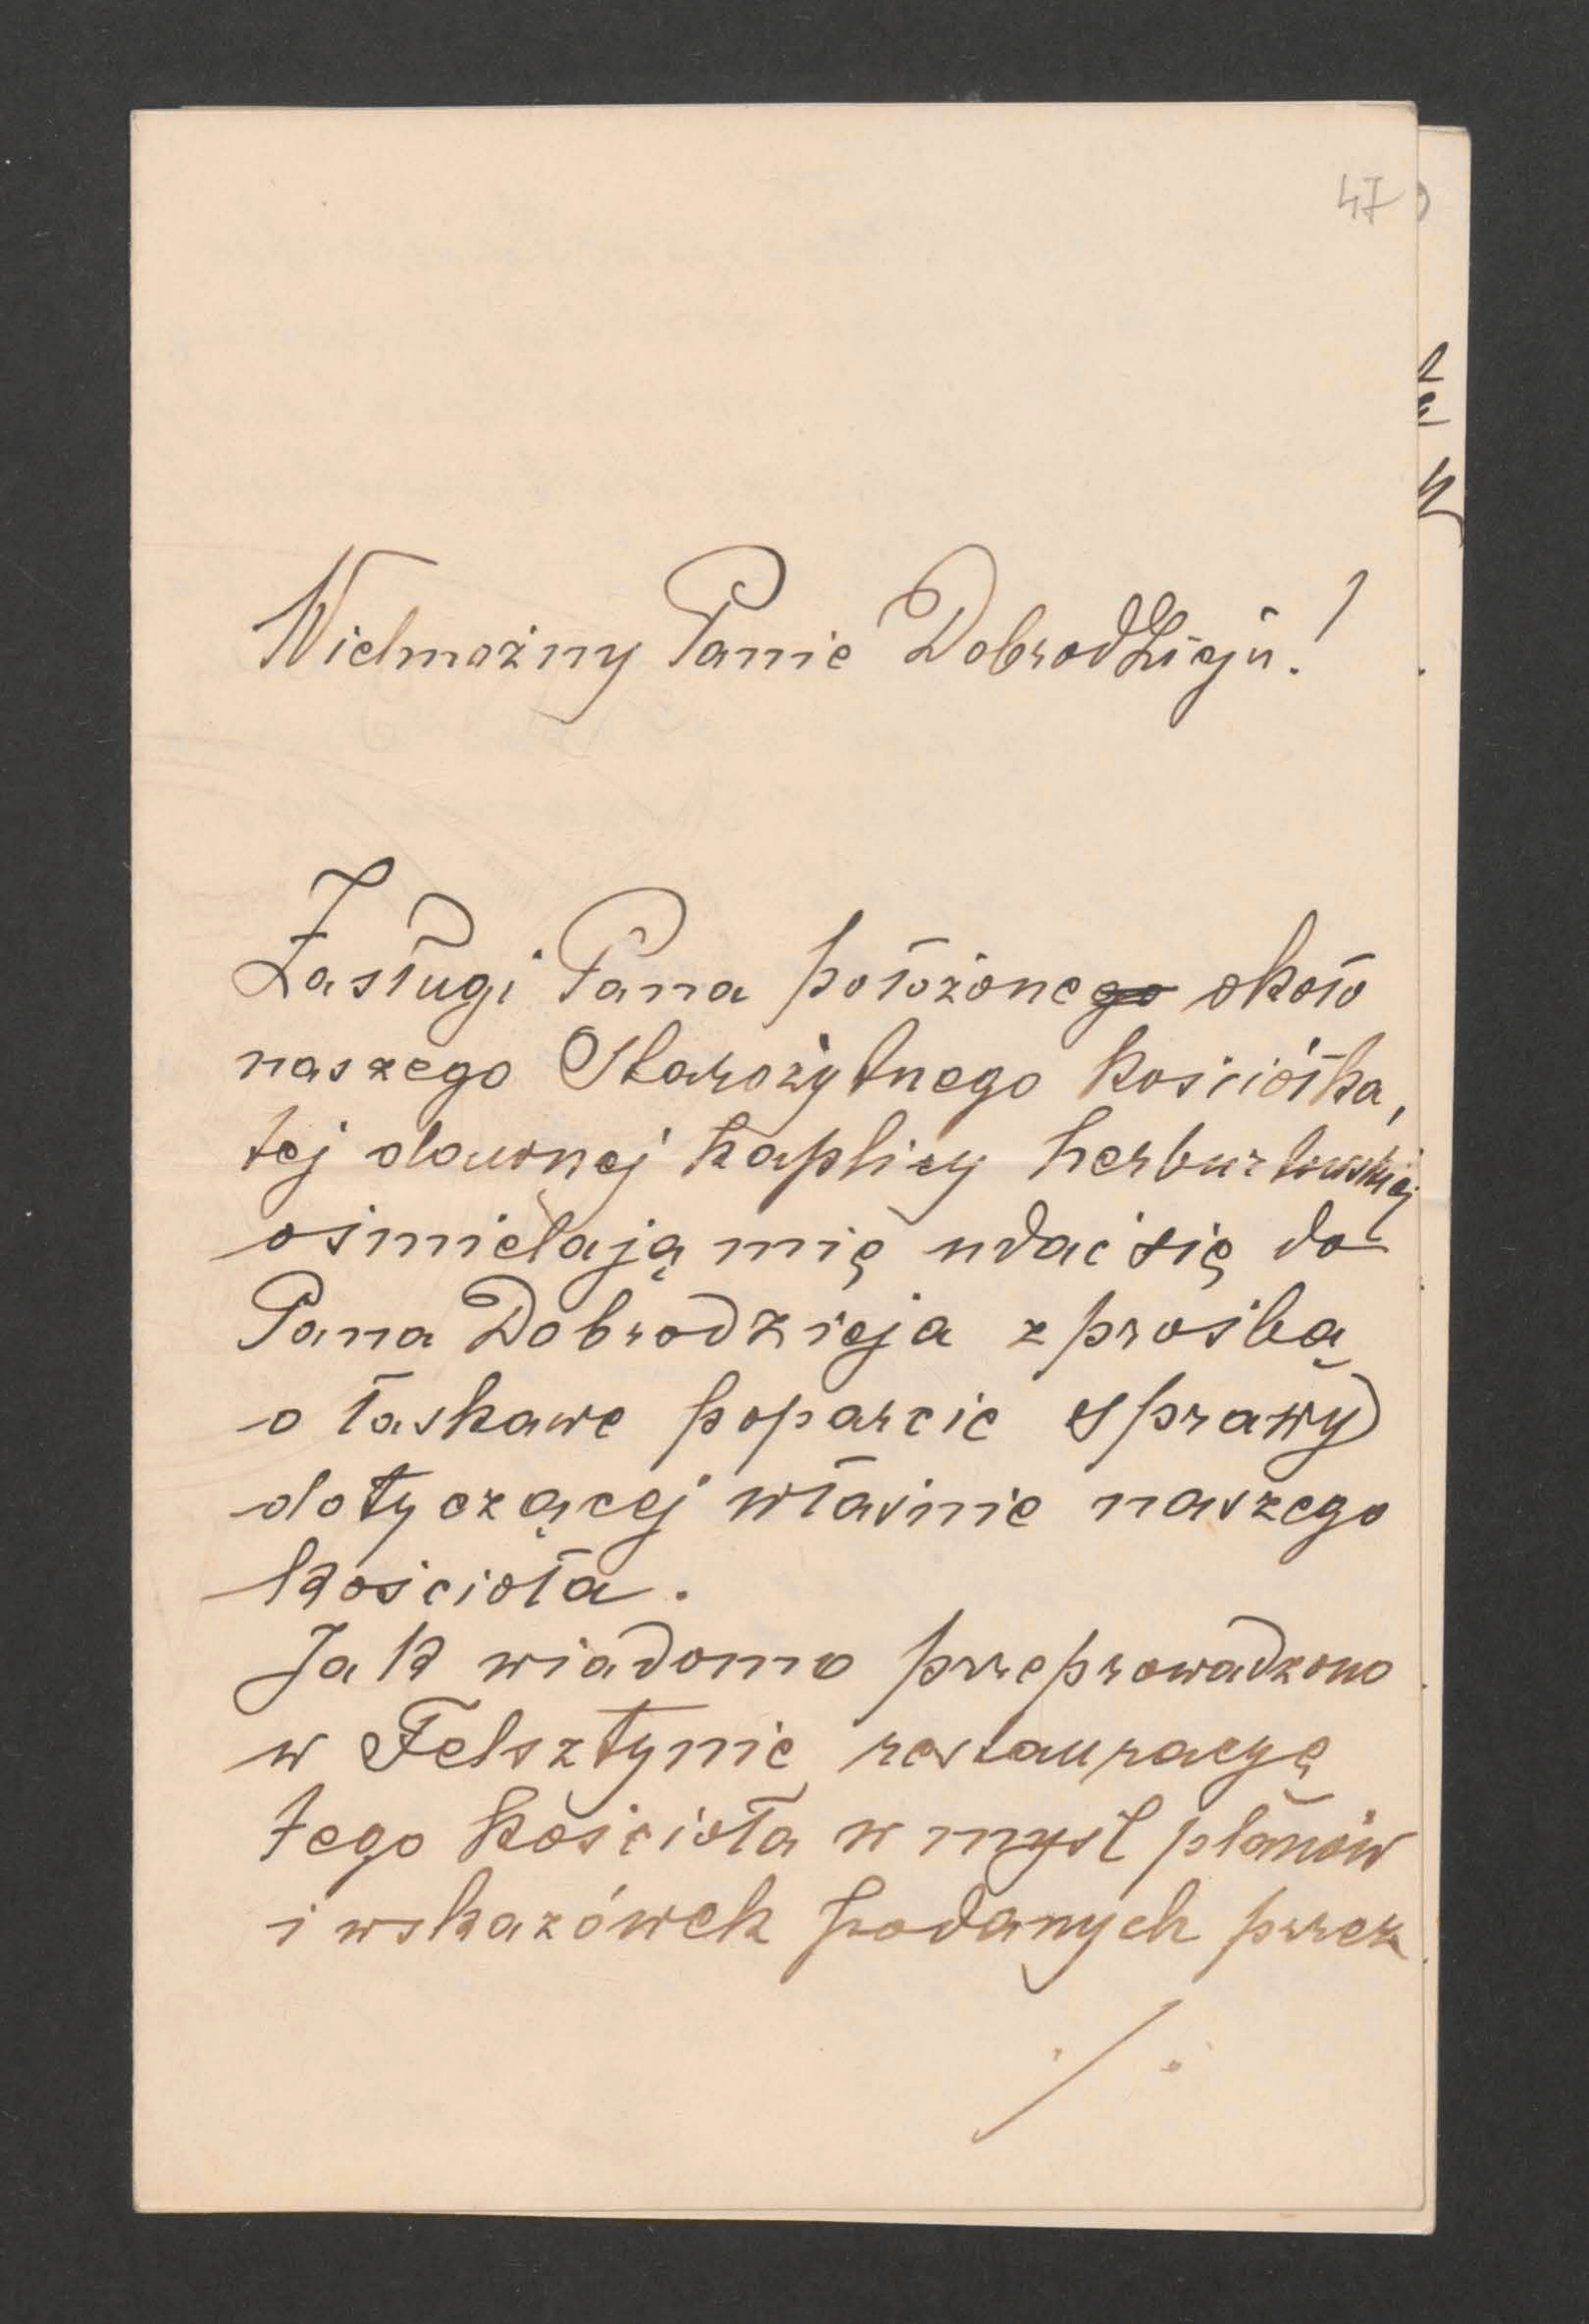 47
Wielmożny Panie Dobrodzieju!
Zasługi Pana położone około
naszego Starożytnego kościółka,
tej dawnej kaplicy herburtowskiej
ośmielają mię udać się do
Pana Dobrodzieja z prośbą
o łaskawe poparcie sprawy
dotyczącej właśnie naszego
kościoła.
Jak wiadomo przeprowadzono
w Felsztynie restauracyę
tego kościoła w myśl planów
i wskazówek podanych przez
./.